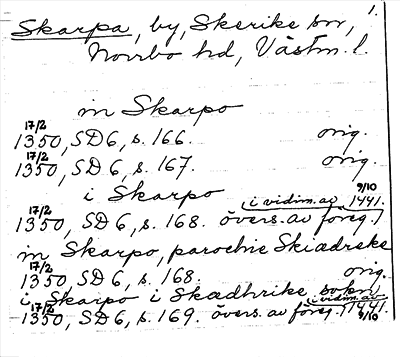 1.
Skarpa, by, Skerike sn,
Norrbo hd, Västm. l.
in Skarpo
17/2
1350, SD 6, s. 166. orig.
17/2
1350, SD 6, s. 167. orig.
i Skarpo
17/2
1350, SD 6, s. 168. övers. av föreg. (i vidim. av 9/10 1441.)
in Skarpo, parochie Skiædreke
17/2
1350, SD 6, s. 168. orig.
i Skarpo i Skædhrike sokn
17/2
1350, SD 6, s. 169. övers. av föreg. (i vidim. av 9/10 1441.)